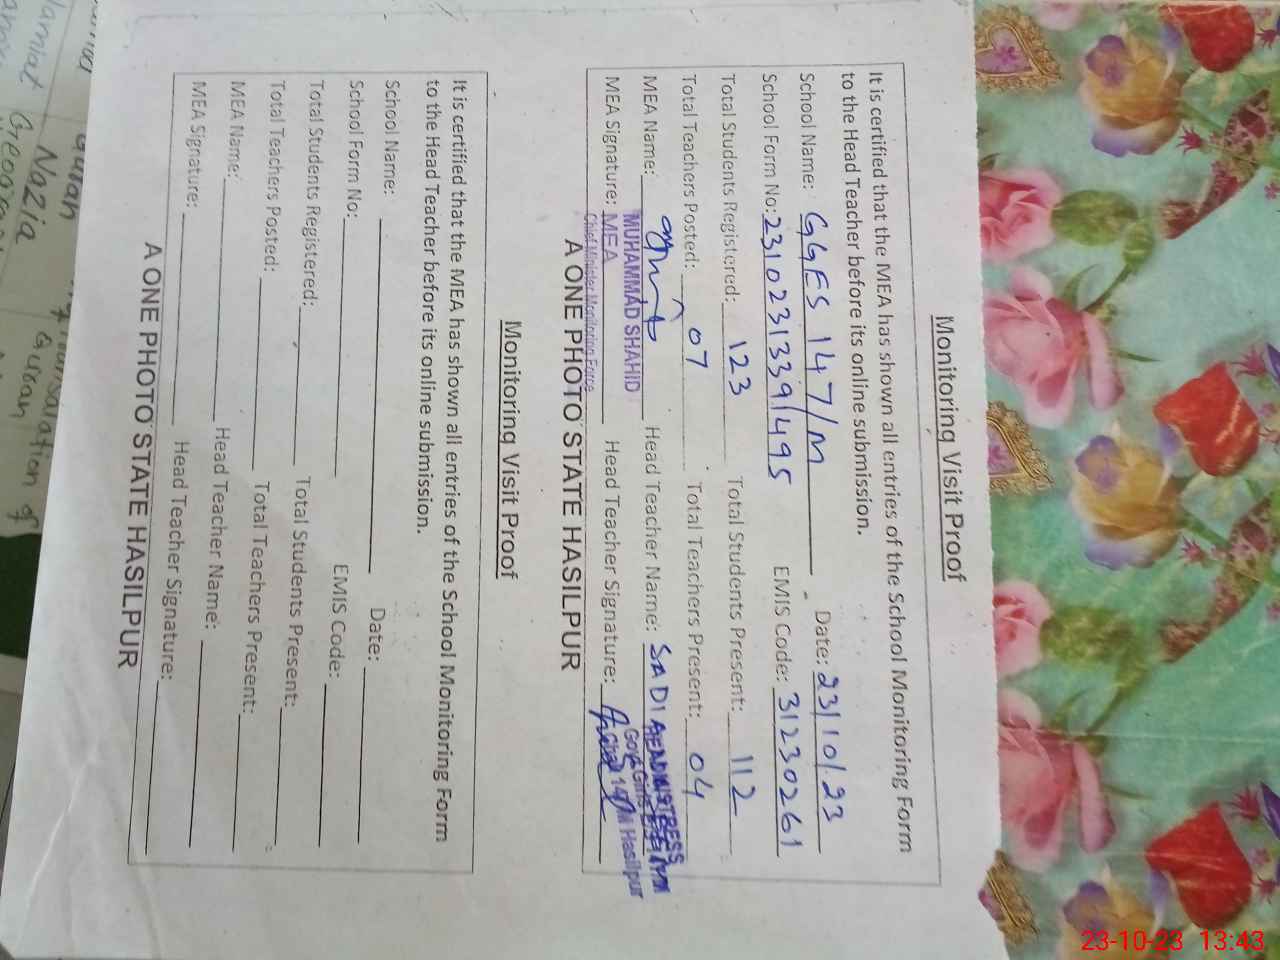 Monitoring Visit Proof
It is certified that the MEA has shown all entries of the School Monitoring Form
to the Head Teacher before its online submission.
School Name: GGES 147/M Date: 23/10/.23
School Form No: 23102313391495 EMIS Code: 31230261
Total Students Registered: 123 Total Students Present: 112
Total Teachers Posted: 07 Total Teachers Present: 04
MEA Name: Head Teacher Name: SADIA
MUHAMMAD SHAHID HEADMISTRESS
MEA Signature: MEA Head Teacher Signature: Govt Girls
Chief Minister Monitoring Force Hasilpur
A ONE PHOTO STATE HASILPUR
Monitoring Visit Proof
It is certified that the MEA has shown all entries of the School Monitoring Form
to the Head Teacher before its online submission.
School Name: Date:
School Form No: EMIS Code:
Total Students Registered: Total Students Present:
Total Teachers Posted: Total Teachers Present:
MEA Name: Head Teacher Name:
MEA Signature: Head Teacher Signature:
A ONE PHOTO STATE HASILPUR
Quran
Nazia
Quran
23-10-23 13:43